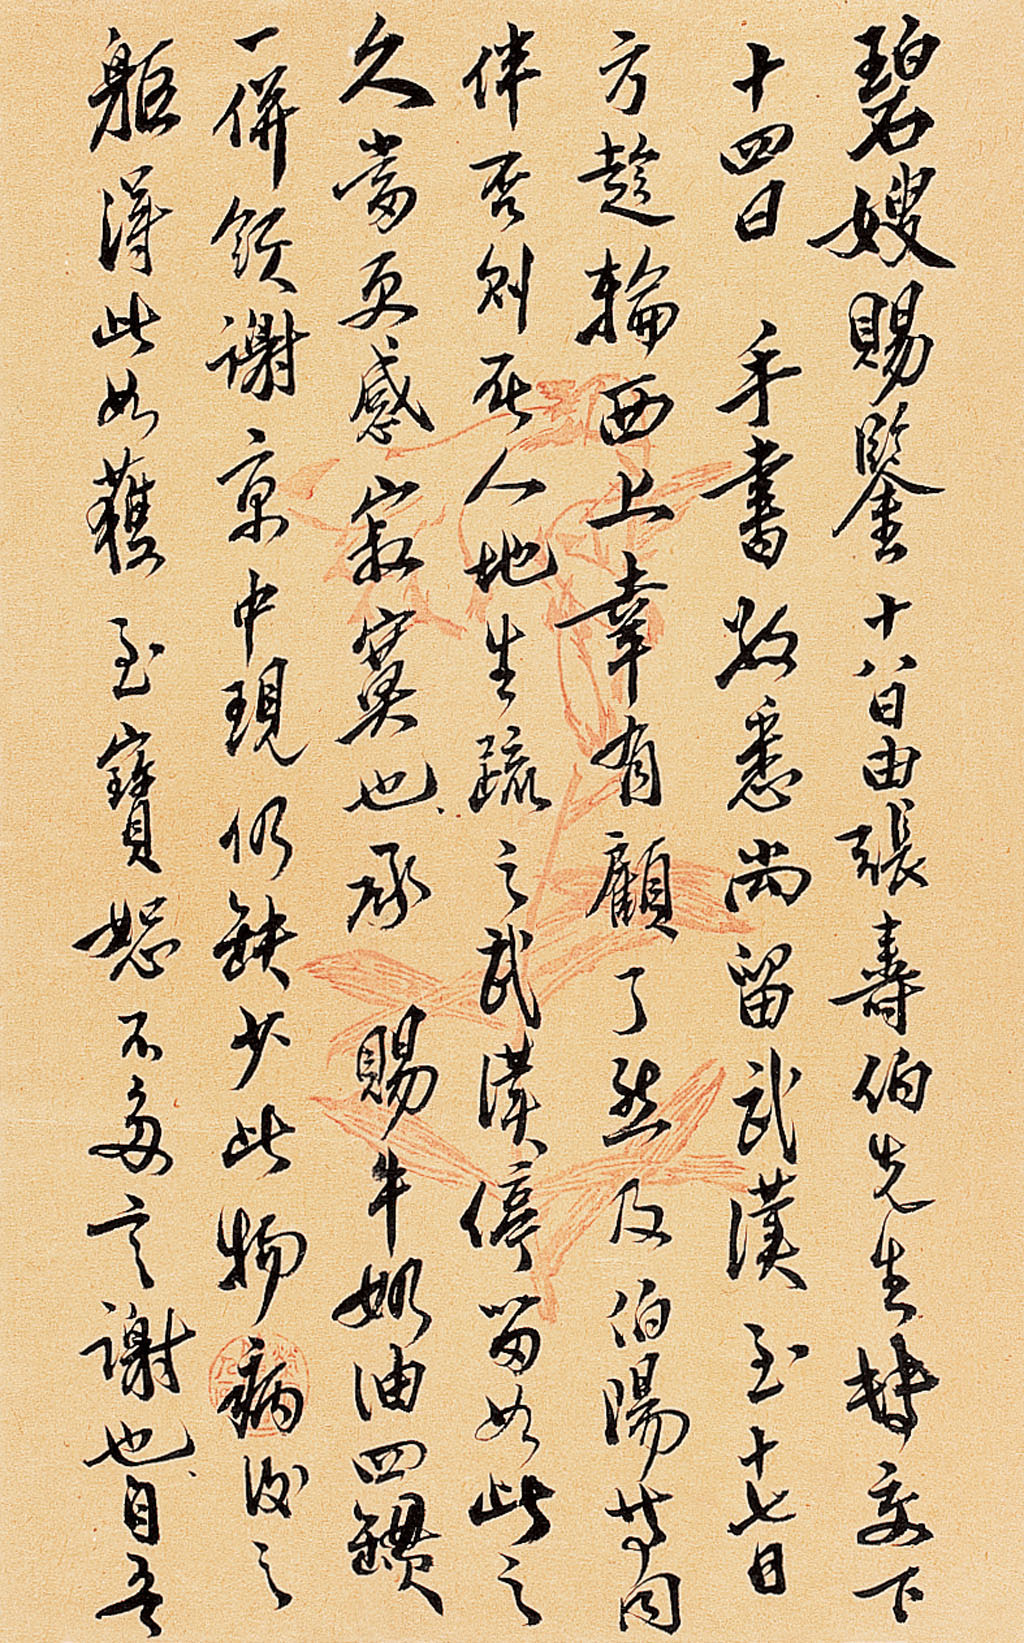 碧嫂賜鑒十八日由張壽伯先生轉交下
十四日 手書敬悉尚留武漢至十七日
方趁輪西上幸有顧了然及伯陽等同
伴否則在人地生疏之武漢停留如此之
久當更感寂寞也承 賜牛奶油四罐
一併領謝京中現仍缺少此物病後之
軀得此如獲至寶恕不多言謝也自吾